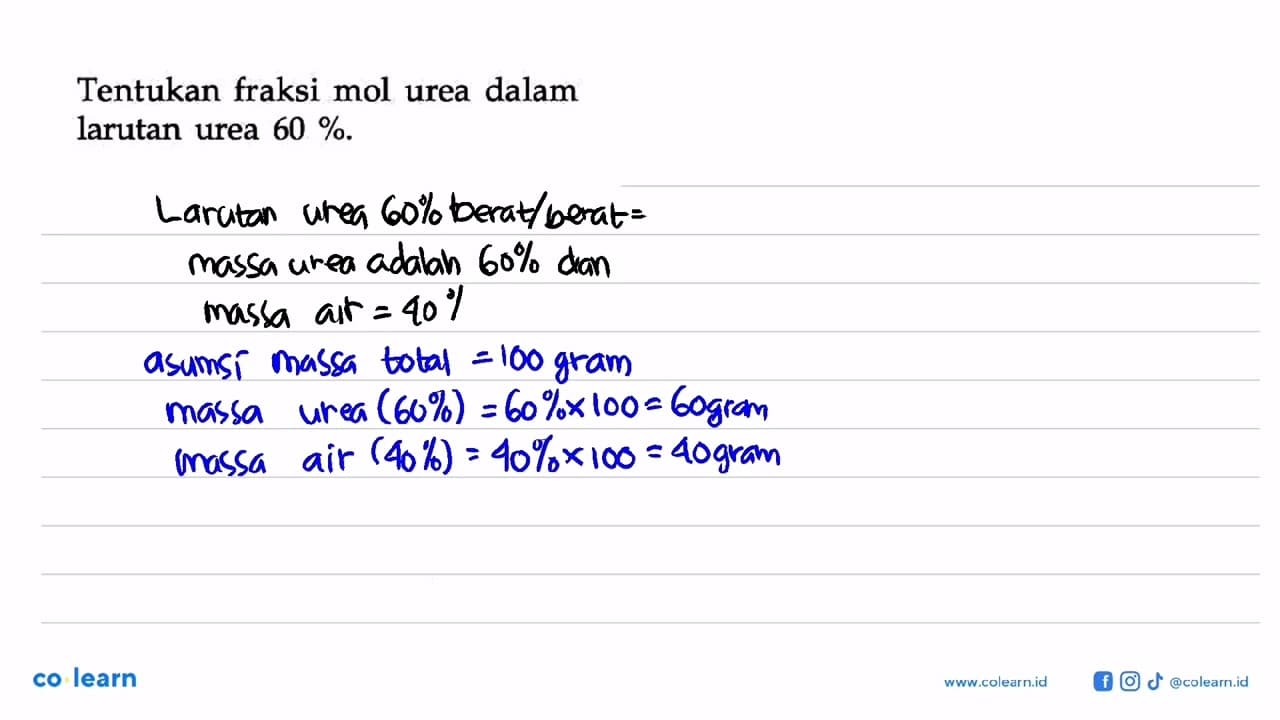 Tentukan fraksi mol urea dalam
larutan urea 60 %.
Larutan urea 60% berat/berat =
massa urea adalah 60% dan
massa air = 40%
asumsi massa total = 100 gram
massa urea (60%) = 60% × 100 = 60 gram
massa air (40%) = 40% × 100 = 40 gram
co learn
www.colearn.id
@colearn.id